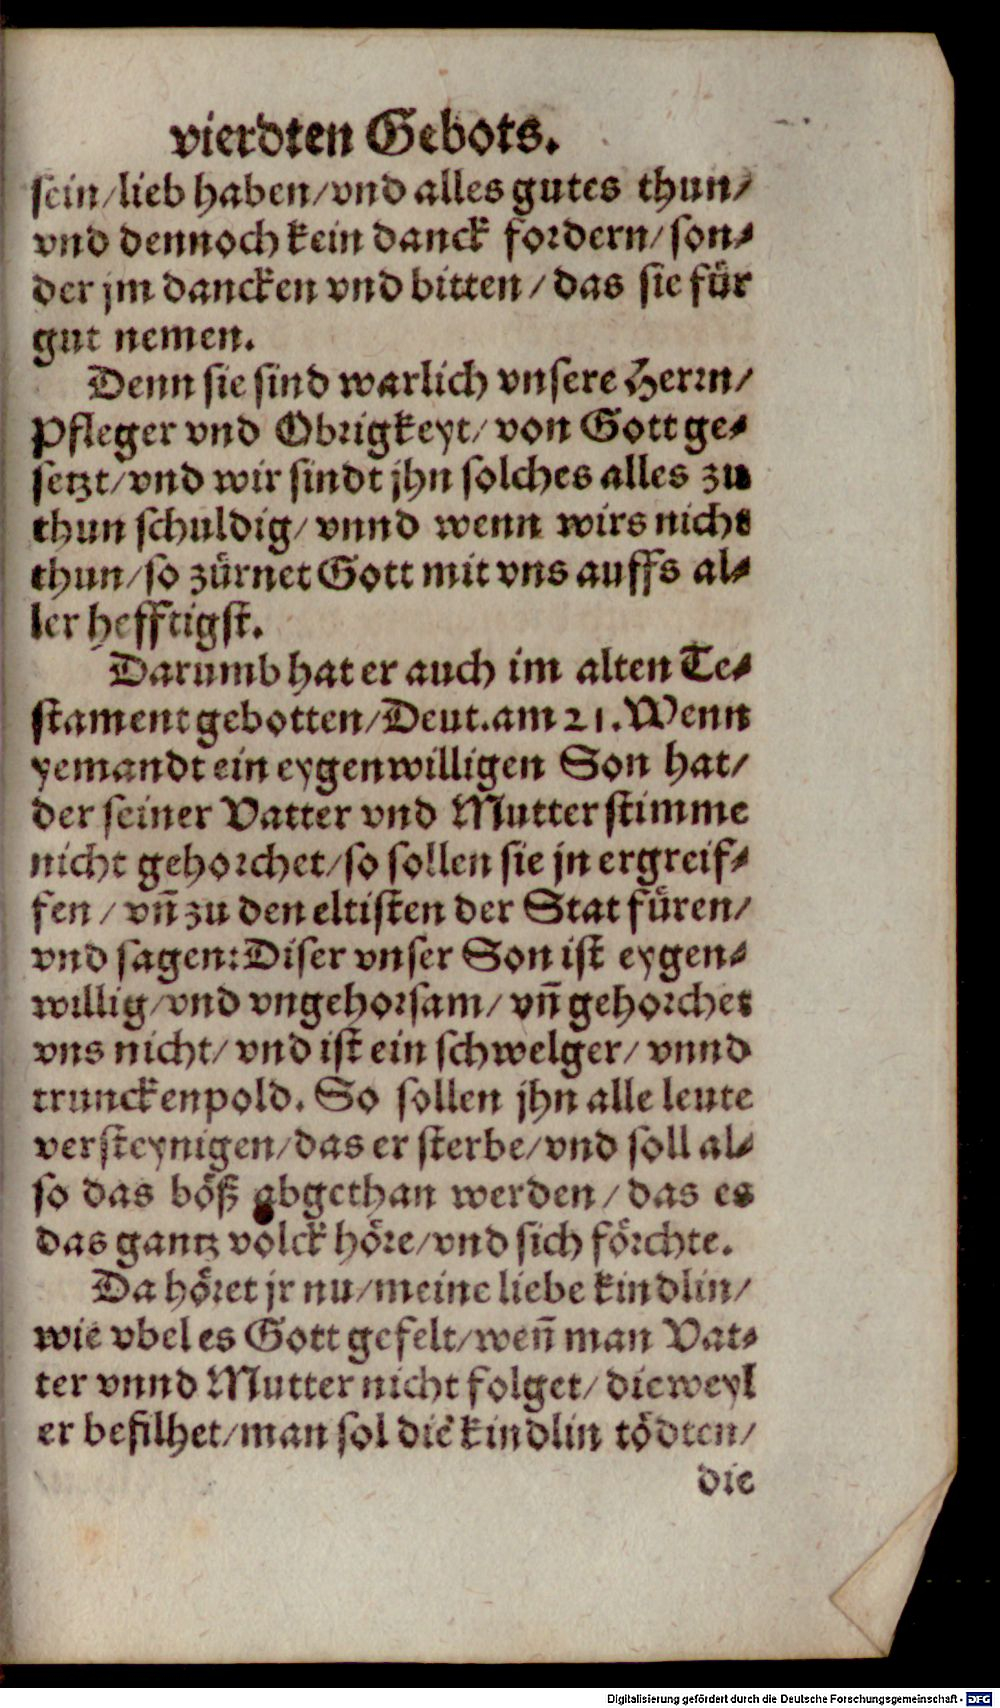 vierdten Gebots.
sein/lieb haben/vnd alles gutes thun/
vnd dennoch kein danck fordern/son-
der jm dancken vnd bitten/das sie für
gut nemen.
Denn sie sind warlich vnsere Herrn/
Pfleger vnd Obrigkeyt/von Gott ge-
setzt/vnd wir sindt jhn solches alles zu
thun schuldig/vnnd wenn wirs nicht
thun/so zürnet Gott mit vns auffs al-
ler hefftigst.
Darumb hat er auch im alten Te-
stament gebotten/Deut.am 21.Wenn
yemandt ein eygenwilligen Son hat/
der seiner Vatter vnd Mutter stimme
nicht gehorchet/so sollen sie jn ergreif-
fen/vñ zu den eltisten der Stat füren/
vnd sagen:Diser vnser Son ist eygen-
willig/vnd vngehorsam/vñ gehorchet
vns nicht/vnd ist ein schwelger/vnnd
trunckenpold. So sollen jhn alle leute
versteynigen/das er sterbe/vnd soll al-
so das böß abgethan werden/das es
das gantz volck höre/vnd sich förchte.
Da höret jr nu/meine liebe kindlin/
wie vbel es Gott gefelt/weñ man Vat-
ter vnnd Mutter nicht folget/dieweyl
er befilhet/man sol die kindlin tödten/
die
Digitalisierung gefördert durch die Deutsche Forschungsgemeinschaft - DFG